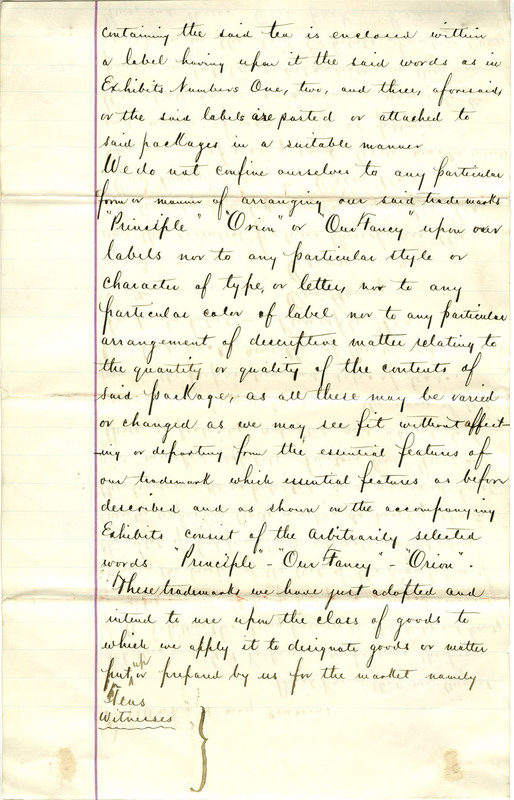 containing the said tea is enclosed within
a label having upon it the said words as in
Exhibits Numbers One, two, and three, aforesaid,
or the said labels are pasted or attached to
said packages in a suitable manner
We do not confine ourselves to any particular
form or manner of arranging our said trade marks
"Principle" "Orion" or "Our Fancy" upon our
labels nor to any particular style or
character of type, or letter, nor to any
particular color of label nor to any particular
arrangement of descriptive matter relating to
the quantity or quality of the contents of
said package, as all these may be varied
or changed as we may see fit without affect-
ing or departing from the essential features of
our trademark which essential features as before
described and as shown on the accompanying
Exhibits consist of the arbitrarily selected
words "Principle" - "Our Fancy" - "Orion".
These trademarks we have just adopted and
intend to use upon the class of goods to
which we apply it to designate goods or matter
put up or prepared by us for the market namely
Teas
Witnesses